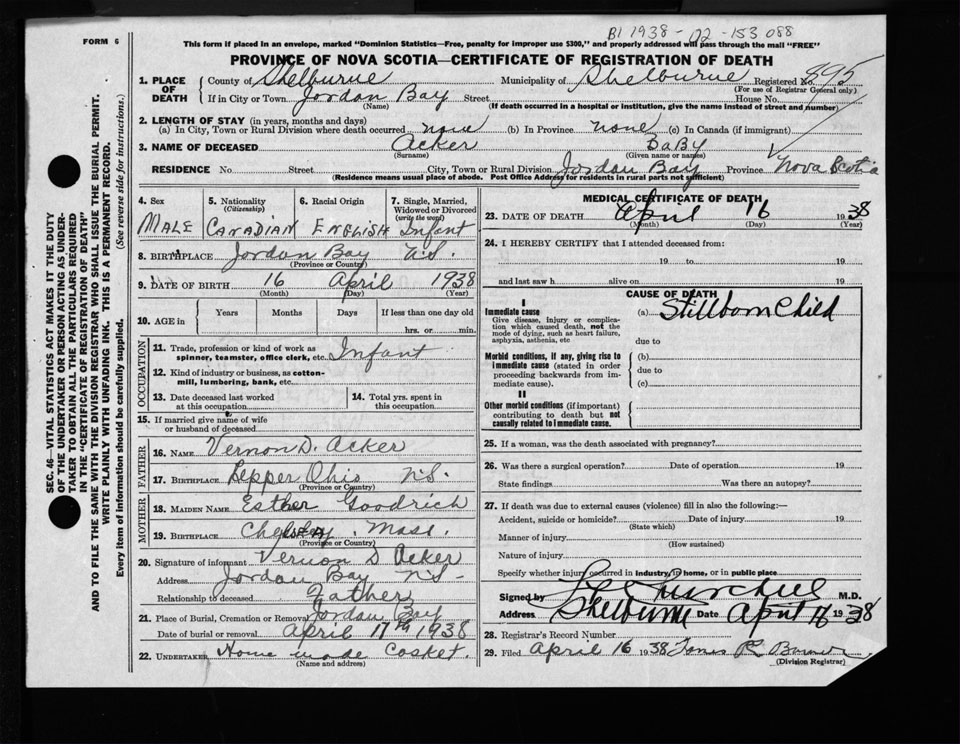 BI 1938-02-153 088
FORM 6
This form if placed in an envelope, marked "Dominion Statistics—Free, penalty for improper use $300," and properly addressed will pass through the mail "FREE"
PROVINCE OF NOVA SCOTIA—CERTIFICATE OF REGISTRATION OF DEATH
1. PLACE OF DEATH County of Shelburne Municipality of Shelburne Registered No. 895
(For use of Registrar General only)
If in City or Town Jordan Bay Street House No.
(Name) (If death occurred in a hospital or institution, give the name instead of street and number)
2. LENGTH OF STAY (in years, months and days)
(a) In City, Town or Rural Division where death occurred none (b) In Province none (c) In Canada (if immigrant)
3. NAME OF DECEASED Acker BaBy
(Surname) (Given name or names)
RESIDENCE No. Street City, Town or Rural Division Jordan Bay Province Nova Scotia
(Residence means usual place of abode. Post Office Address for residents in rural parts not sufficient)
4. Sex 5. Nationality (Citizenship) 6. Racial Origin 7. Single, Married, Widowed or Divorced (write the word)
MALE CANADIAN ENGLISH Infant
8. BIRTHPLACE Jordan Bay N.S.
(Province or Country)
9. DATE OF BIRTH 16 April 1938
(Month) (Day) (Year)
10. AGE in Years Months Days If less than one day old
hrs. or min.
OCCUPATION
11. Trade, profession or kind of work as spinner, teamster, office clerk, etc. Infant
12. Kind of industry or business, as cotton-mill, lumbering, bank, etc.
13. Date deceased last worked at this occupation
14. Total yrs. spent in this occupation
15. If married give name of wife or husband of deceased
FATHER
16. NAME Vernon D. Acker
17. BIRTHPLACE Ohio N.S.
(Province or Country)
MOTHER
18. MAIDEN NAME Esther Goodrich
19. BIRTHPLACE Mass.
(Province or Country)
20. Signature of informant Vernon D Acker
Address Jordan Bay N.S.
Relationship to deceased Father
21. Place of Burial, Cremation or Removal Jordan Bay
Date of burial or removal April 17th 1938
22. UNDERTAKER Home made Casket.
(Name and address)
MEDICAL CERTIFICATE OF DEATH
23. DATE OF DEATH April 16 1938
(Month) (Day) (Year)
24. I HEREBY CERTIFY that I attended deceased from:
19 to 19
and last saw h alive on 19
CAUSE OF DEATH
I
Immediate cause (a) Stillborn Child
Give disease, injury or complication which caused death, not the mode of dying, such as heart failure, asphyxia, asthenia, etc
due to
Morbid conditions, if any, giving rise to immediate cause (stated in order proceeding backwards from immediate cause).
(b)
due to
(c)
II
Other morbid conditions (if important) contributing to death but not causally related to immediate cause.
25. If a woman, was the death associated with pregnancy?
26. Was there a surgical operation? Date of operation 19
State findings Was there an autopsy?
27. If death was due to external causes (violence) fill in also the following:
Accident, suicide or homicide? Date of injury 19
(State which)
Manner of injury
(How sustained)
Nature of injury
Specify whether injury occurred in industry, in home, or in public place
Signed by M.D.
Address Shelburne Date April 1938
28. Registrar's Record Number
29. Filed April 16 1938 James R
(Division Registrar)
SEC. 46—VITAL STATISTICS ACT MAKES IT THE DUTY
OF THE UNDERTAKER OR PERSON ACTING AS UNDER-
TAKER TO OBTAIN ALL THE PARTICULARS REQUIRED
IN THE "CERTIFICATE OF REGISTRATION OF DEATH"
AND TO FILE THE SAME WITH THE DIVISION REGISTRAR WHO SHALL ISSUE THE BURIAL PERMIT.
WRITE PLAINLY WITH UNFADING INK. THIS IS A PERMANENT RECORD.
Every item of Information should be carefully supplied. (See reverse side for instructions.)